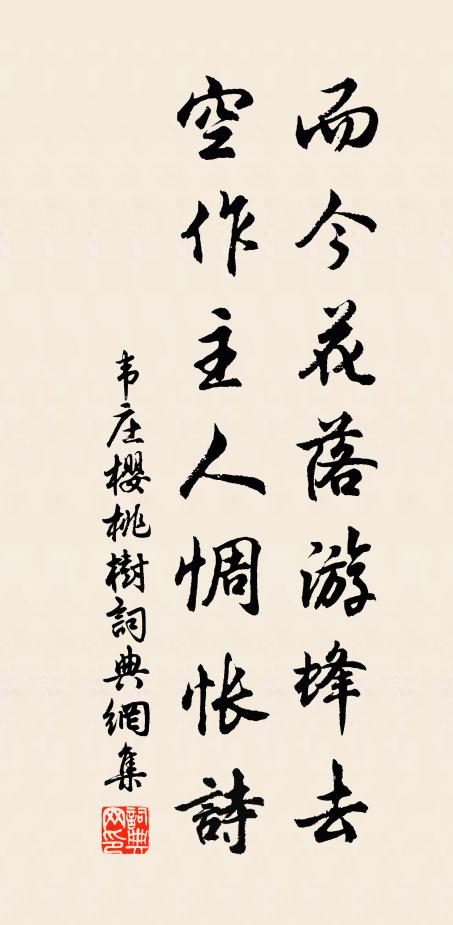 而今花落游蜂去
空作主人惆怅詩
韦庄櫻桃樹詞典網集
詞典
网印